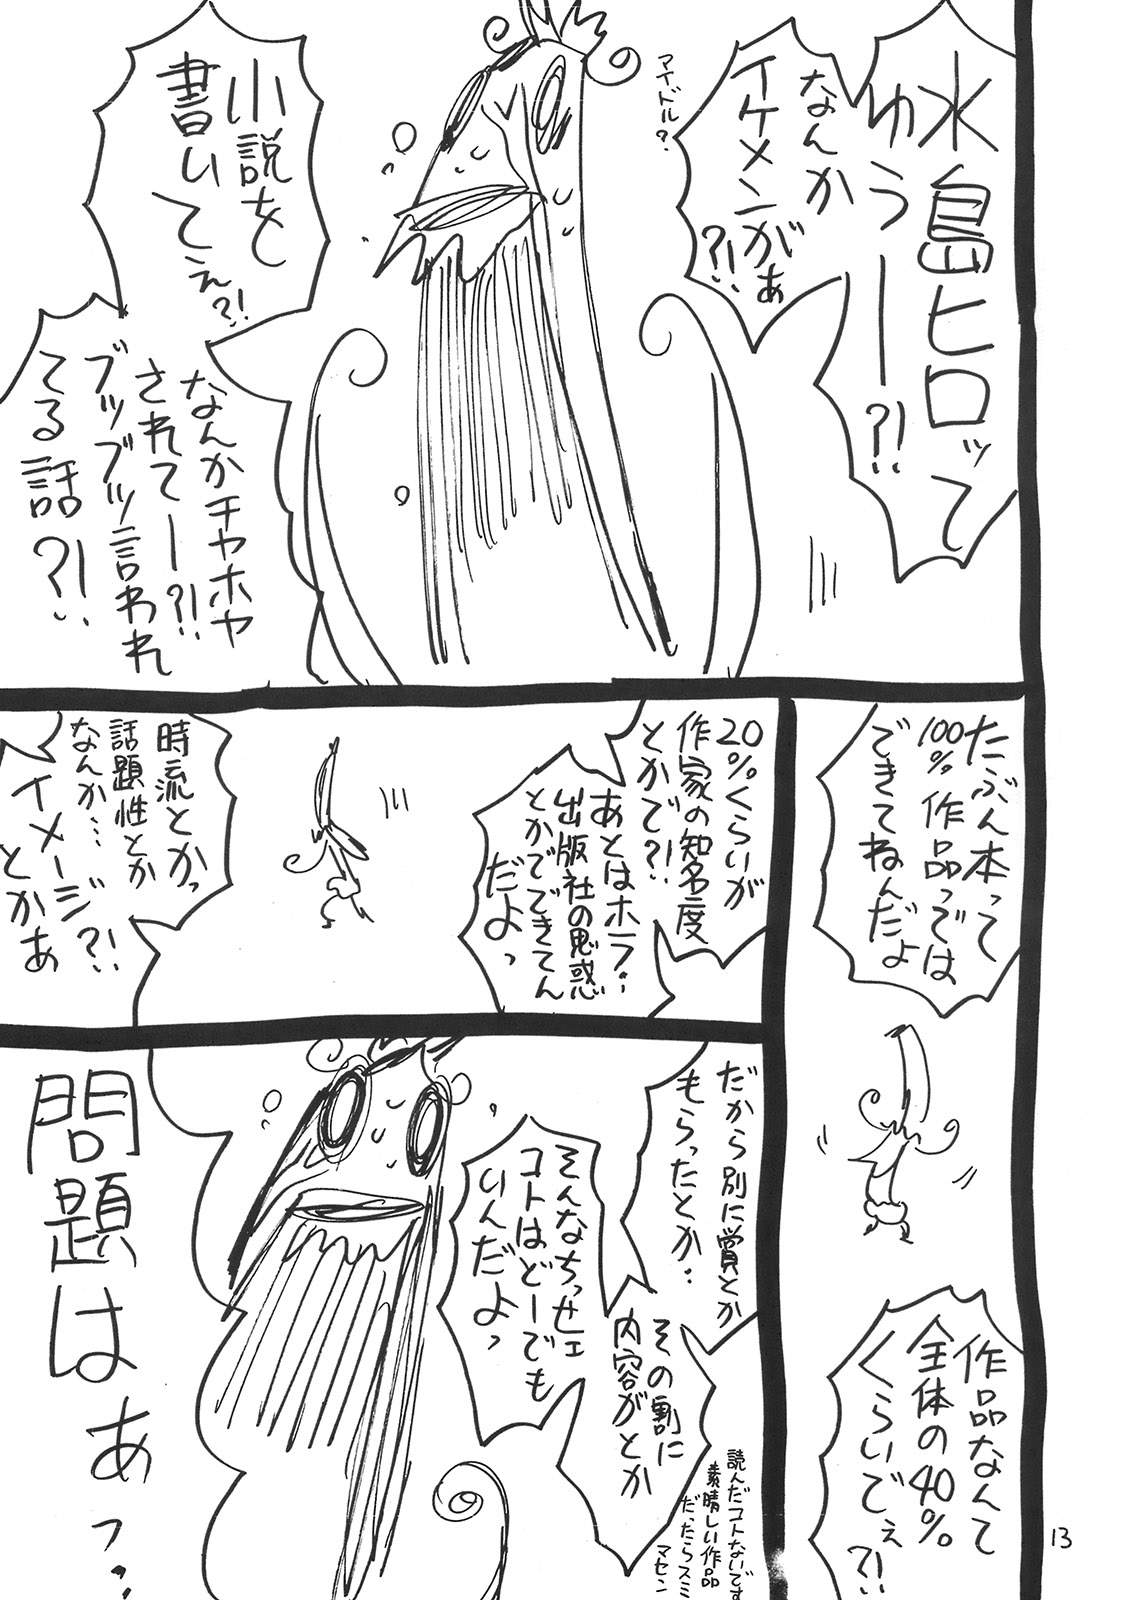 水島ヒロッて
ゅうー?!
なんか
イケメンがぁ
?!
マイドル?
小説を
書いてぇ?!
なんかチヤホヤ
されてー?!
ブツブツ言われ
てる話?!
たぶん本って
100%作品っでは
できてねんだよ
作品なんて
全体の40%
くらいでぇ?!
20%くらいが
作家の知名度
とかで?!
あとはホラ…
出版社の思惑
とかでできてん
だよっ
時流とかっ
話題性とか
なんか…
イメージ?!
とかぁ
だから別に賞とか
もらったとか…
その割に
内容がとか
読んだコトないです
素晴しい作品
だったらスミ
マセン
そんなちっせェ
コトはどーでも
いんだよっ
問題はぁっ…
13